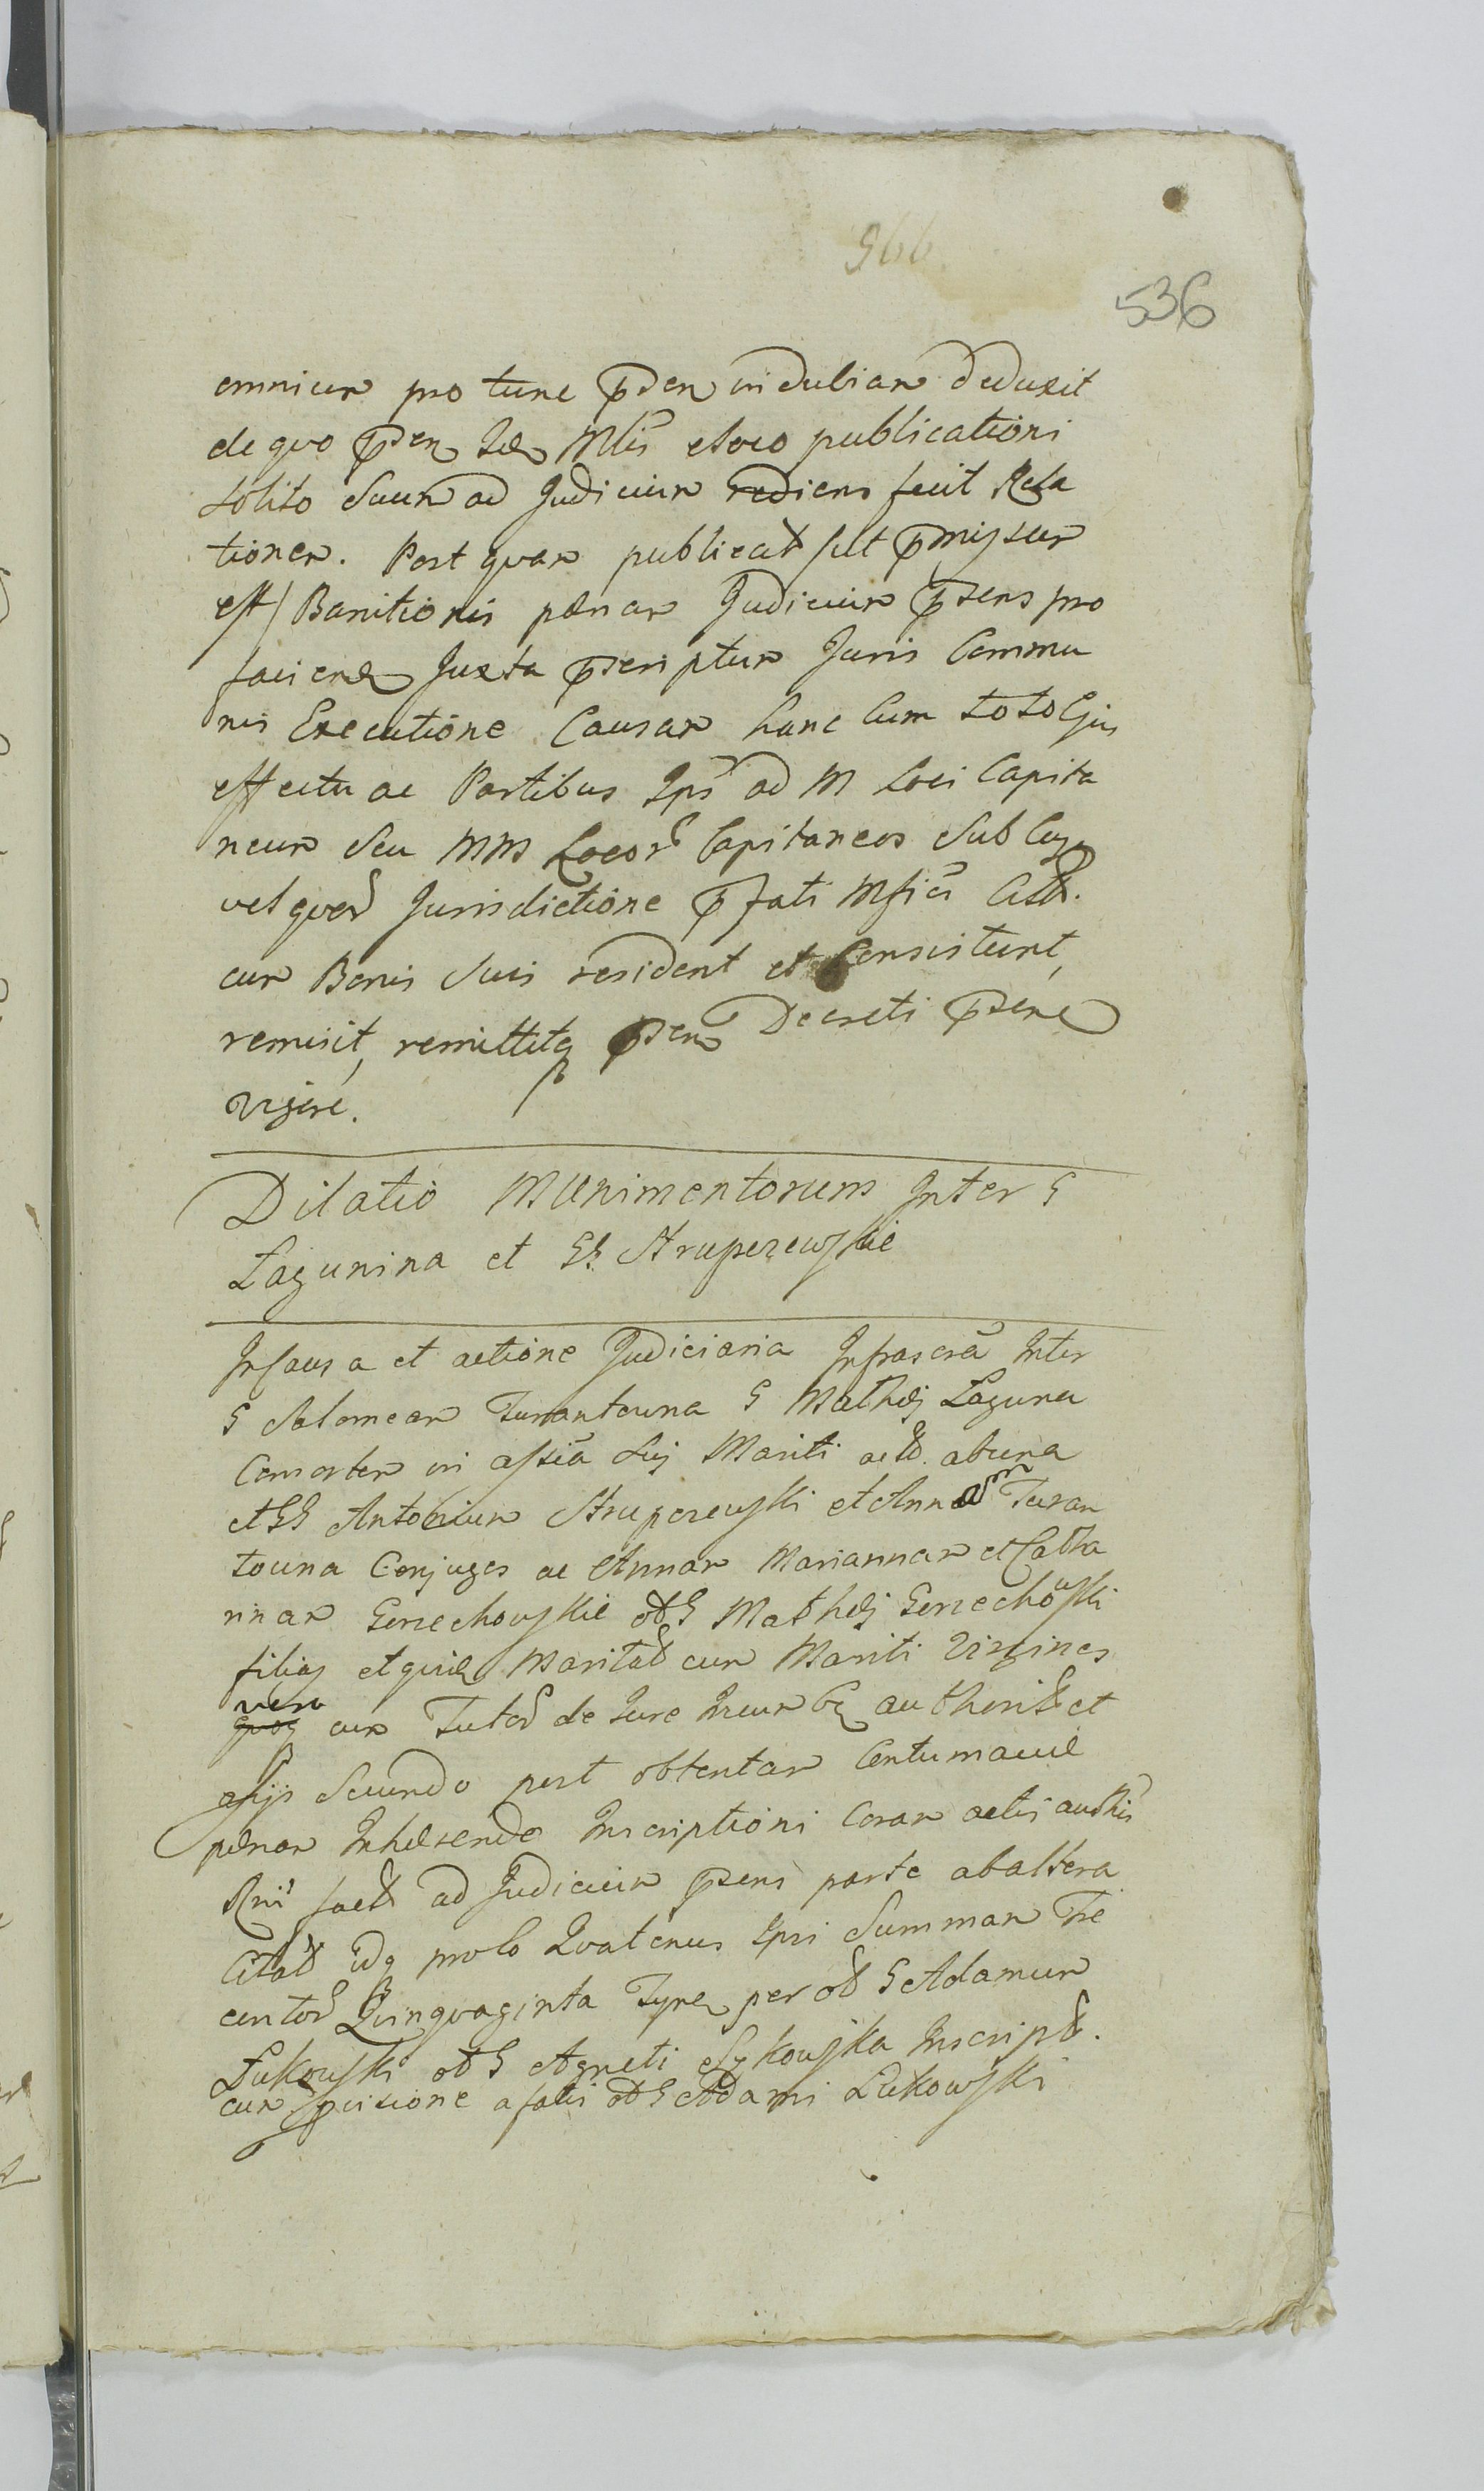 966
536
omnium pro tunc pñsen indubian deduxit
de quo pñsen Idem Mlis eloco publicationi
solito suum ad Judicium rediens fecit Rela
tionem. Post quam publicat (ut pmissum
est) Banitionis pænam Judicium pñsens pro
faciend Juxta pscriptum Juris Commu
nis Executione Causam hanc Cum toto Ejus
effectu ac Partibus Ipis ad M Loci Capita
neum seu MM Locor Capitaneos sub Cujus
vel quor Jurisdictione pfati Mfici Citt.
cum Bonis suis resident et consistunt,
remisit, remittitq pñsen Decreti pñsen
vigore.
Dilatio Munimentorum Inter G
Lagunina et GG Strupczewskie
In Causa et actione Judiciaria Infrascra Inter
G Salomeam Turantowna G Mathei Laguna
Consortem in assia sui Mariti act. ab una
et GG Antonium Strupczewski et Annam Turan
towna Conjuges ac Annam Mariannam et Catha
rinam Gerzechowskie ol G Mathei Gerzechowski
filias et quid Maritat cum Mariti Virgines
quoq vero cum Tutor de Jure Incumben authorit et
assijs secundo post obtentam Contumaciæ
pænam Inhærendo Inscriptioni Coram actis authis
Rni fact ad Judicium pñsens parte ab altera
Citat idq prolo Quatenus Ipsi Summam Tre
centor Quinquaginta Tynf per ol G Adamum
Lukowski ol G Agneti Lykowska Inscript.
cum pvisione a fatis ol G Adami Lukowski